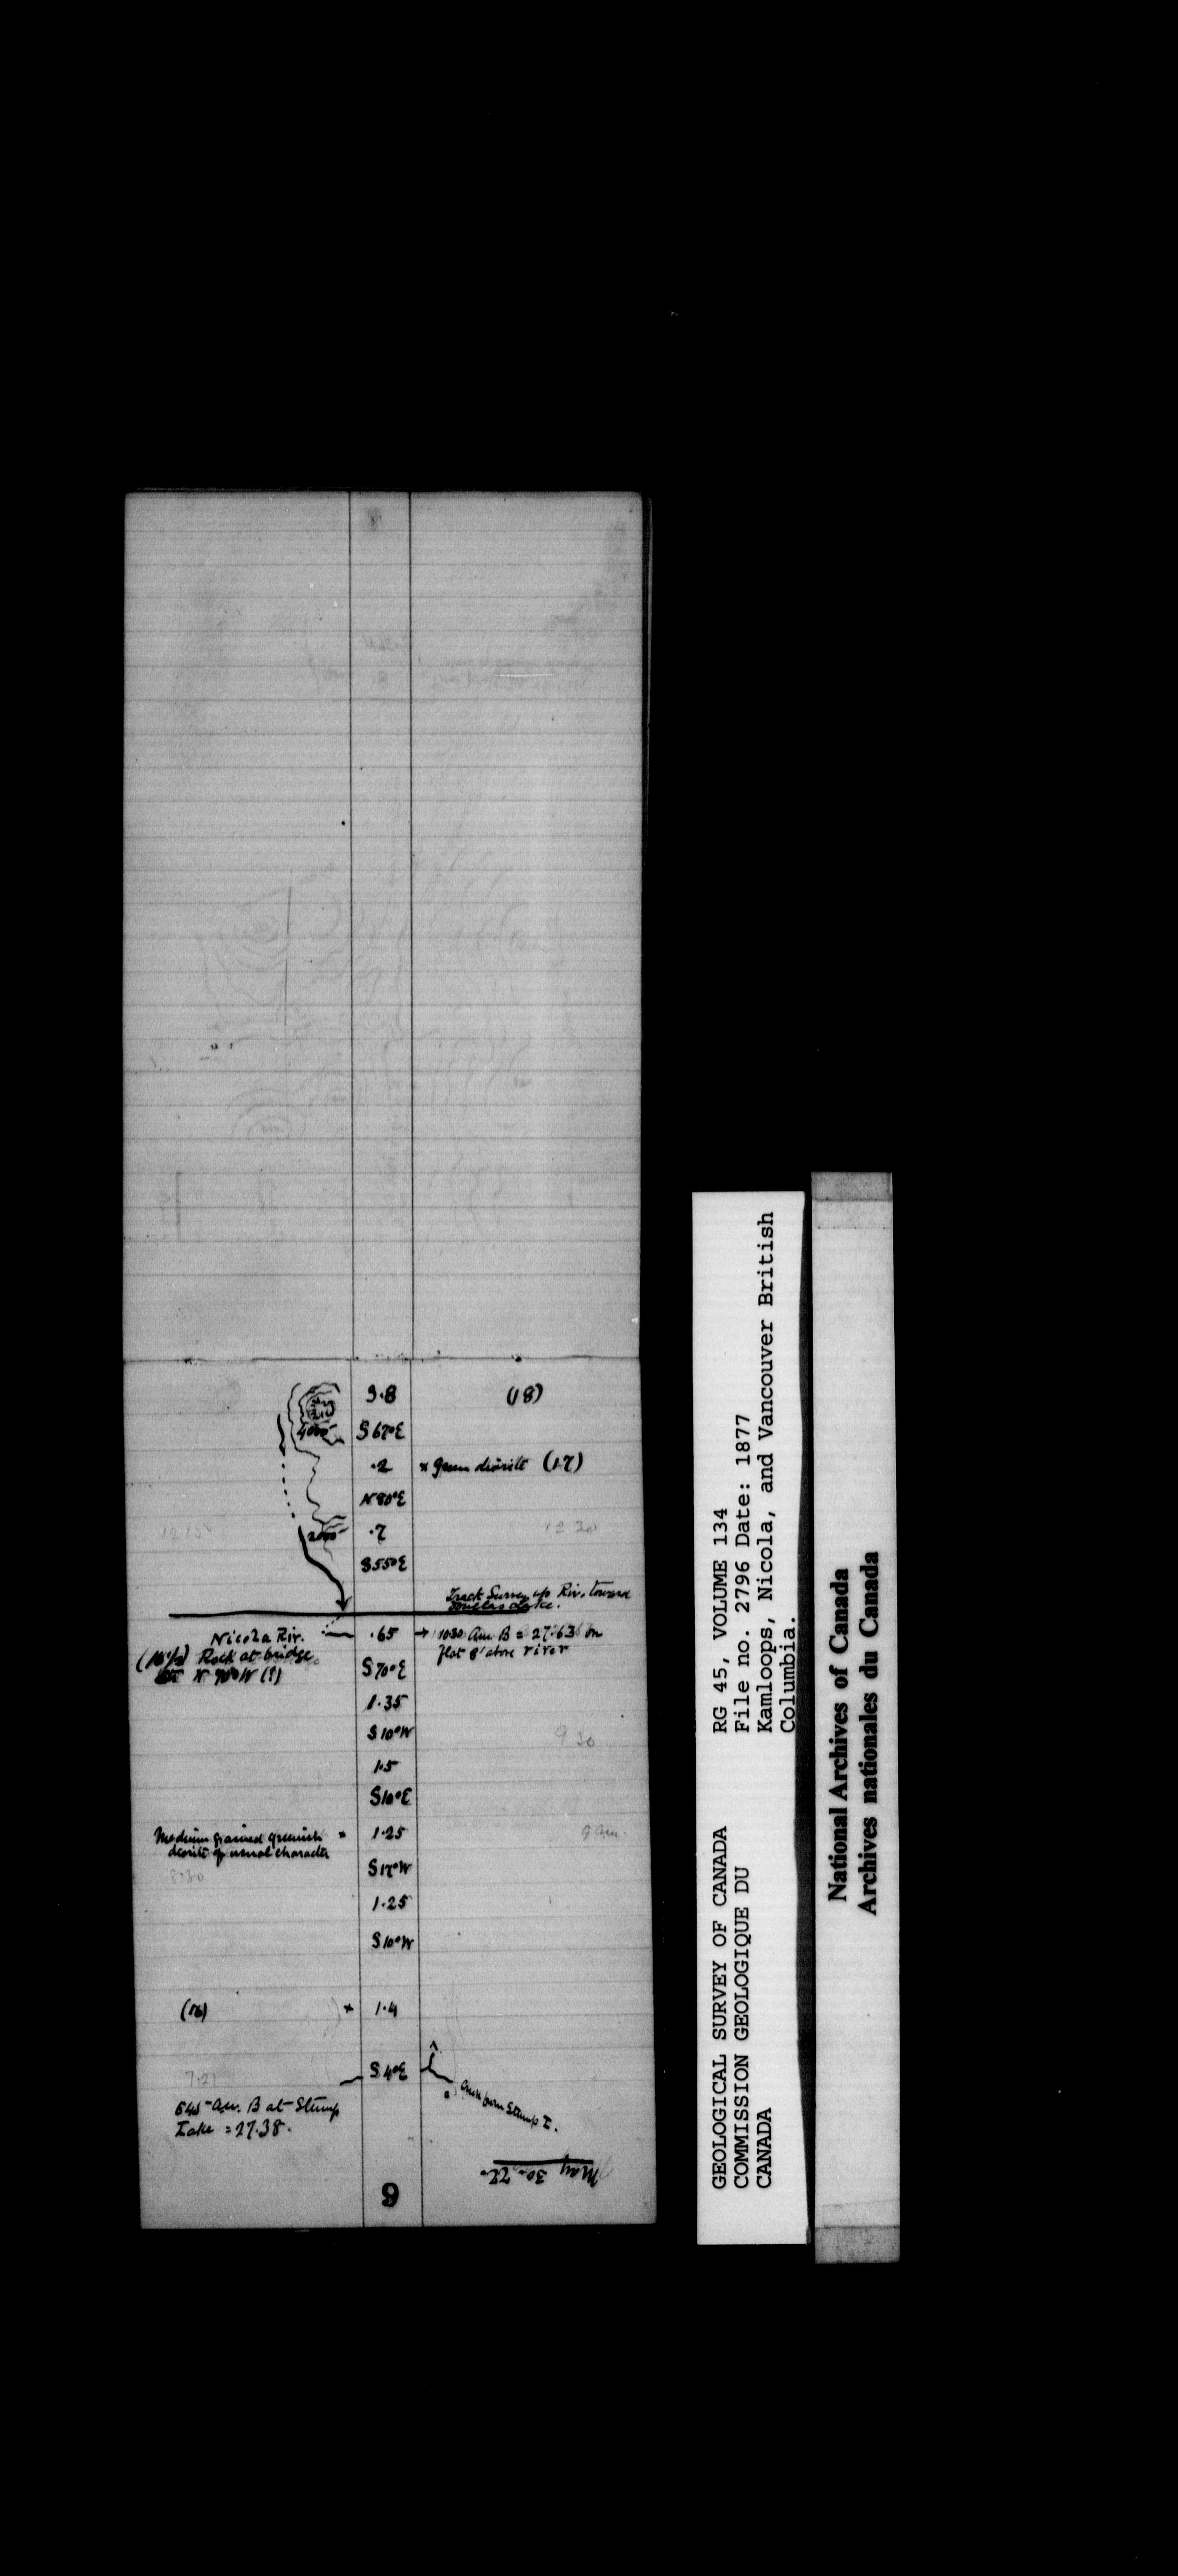 3.8 (18)
4000
S 67° E
.2 × green diorite (17)
N 80° E
12 30
2000 .7
S 55° E
Track Survey up Riv. toward
Douglas Lake.
Nicola Riv. .65 → 1030 An. B = 27.63 on
flat 8' above river
(16½) Rock at bridge
N 70° W (?)
S 70° E
1.35
S 10° W
9 30
1.5
S 10° E
Medium grained greenish × 1.25
diorite of usual character
9 am.
8.30
S 17° W
1.25
S 10° W
(16) × 1.4
S 4° E
7.21
Creek from Stump L.
645 An. B at Stump
Lake = 27.38.
May 30
9
GEOLOGICAL SURVEY OF CANADA
COMMISSION GEOLOGIQUE DU
CANADA
RG 45, VOLUME 134
File no. 2796 Date: 1877
Kamloops, Nicola, and Vancouver British
Columbia.
National Archives of Canada
Archives nationales du Canada